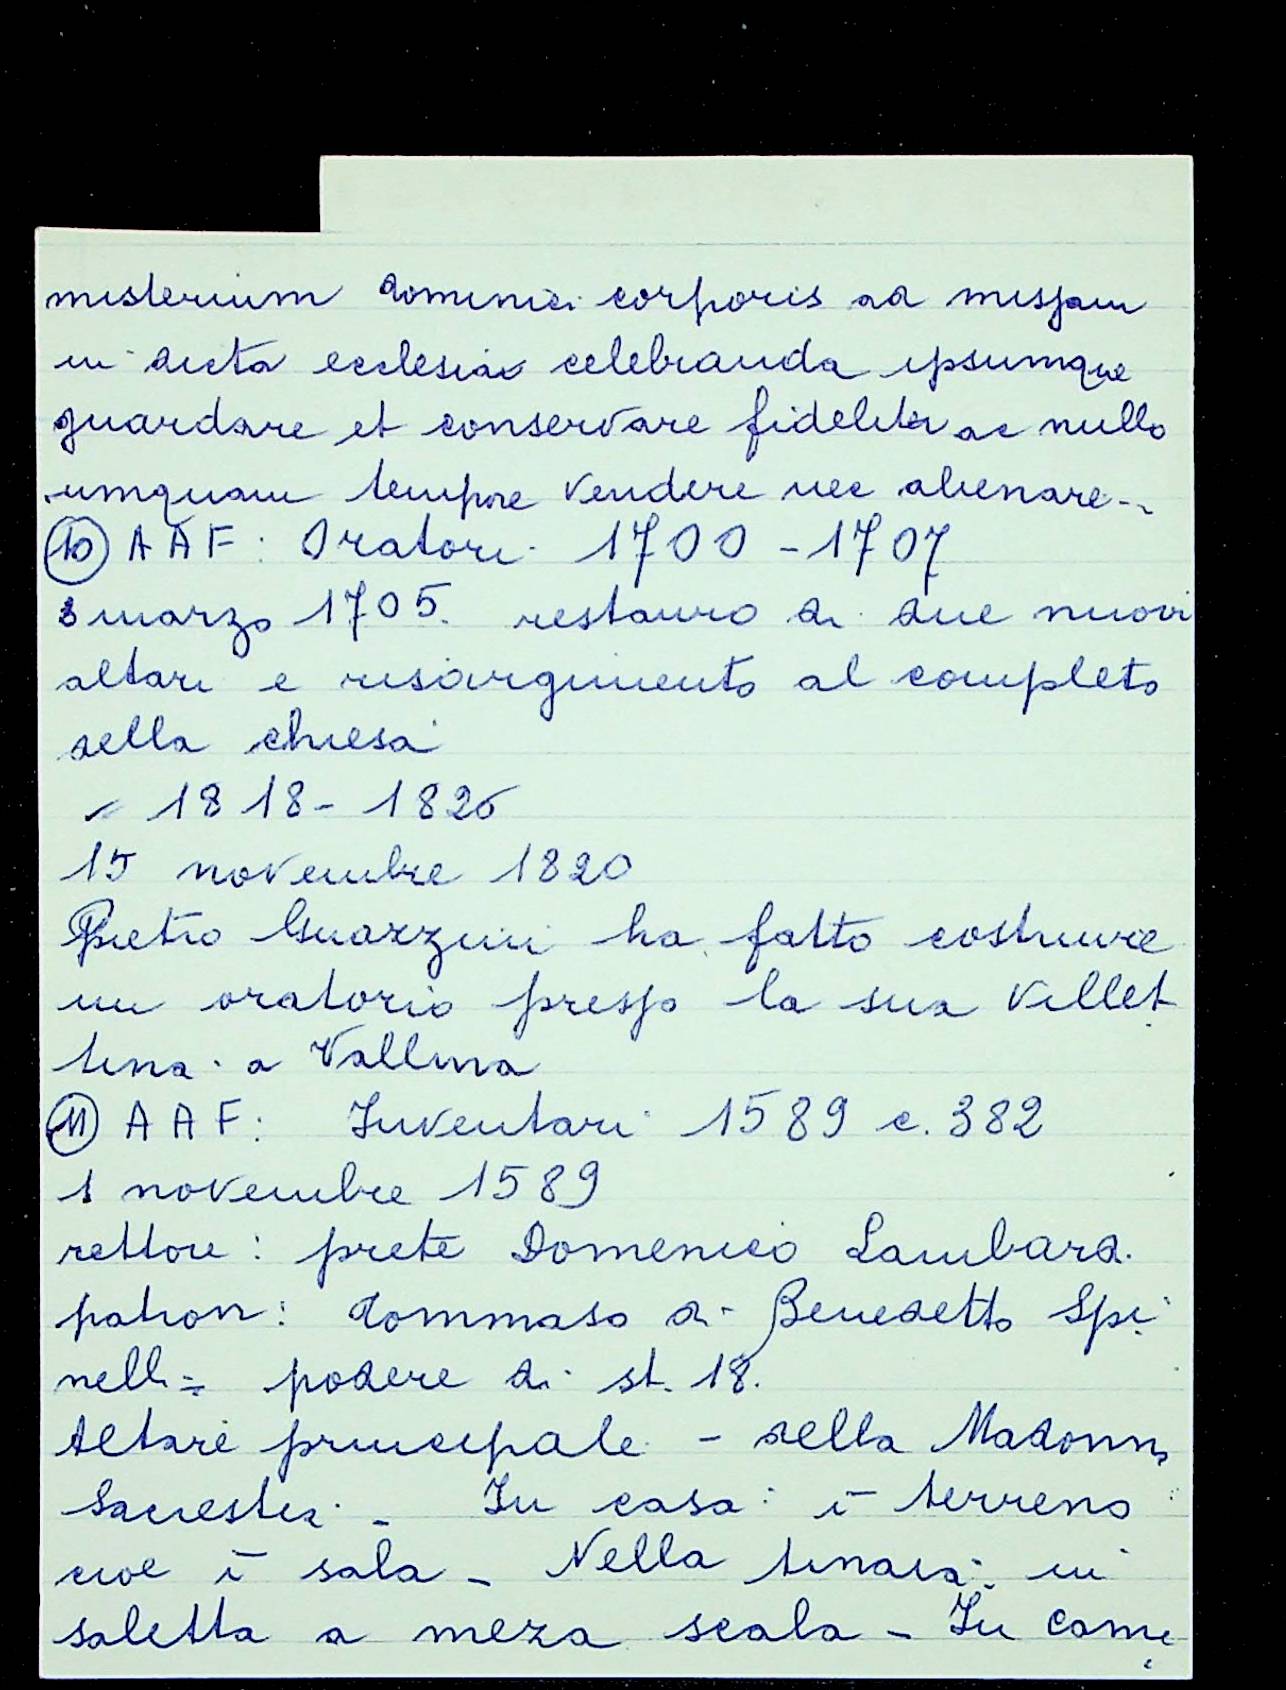 misterium dominici corporis ad missam
in dicta ecclesia celebranda ipsumque
guardare et conservare fideliter ac nullo
umquam tempore vendere nec alienare -
10 A A F: Oratori 1700 - 1707
3 marzo 1705. restauro di due nuovi
altari e risorgimento al completo
della chiesa
" 1818 - 1826
15 novembre 1820
Pietro Guazzini ha fatto costruire
un oratorio presso la sua villet
tina a Vallina
11 A A F: Inventari 1589 c. 382
1 novembre 1589
rettore: prete Domenico Lambard.
patron: Tommaso di Benedetto Spi
nelli = podere di st. 18.
Altare principale - della Madonna
Sacrestia - In casa: i terreno
cioè i sala - Nella tinaia: in
saletta a meza scala - In came